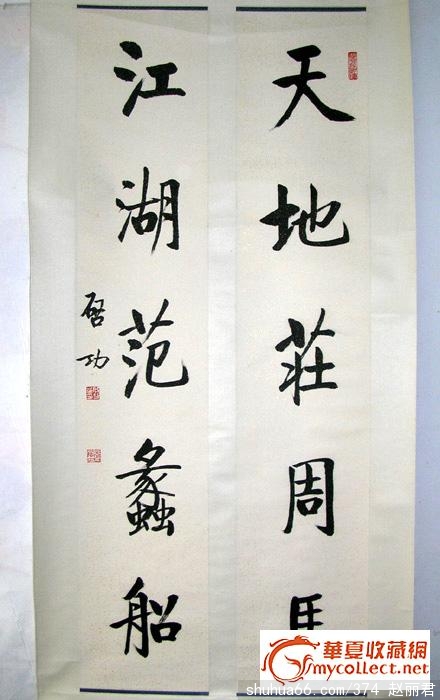 天地莊周馬
江湖范蠡船
启功
華夏收藏網
mycollect.net
shuhua66.com/374 赵丽君